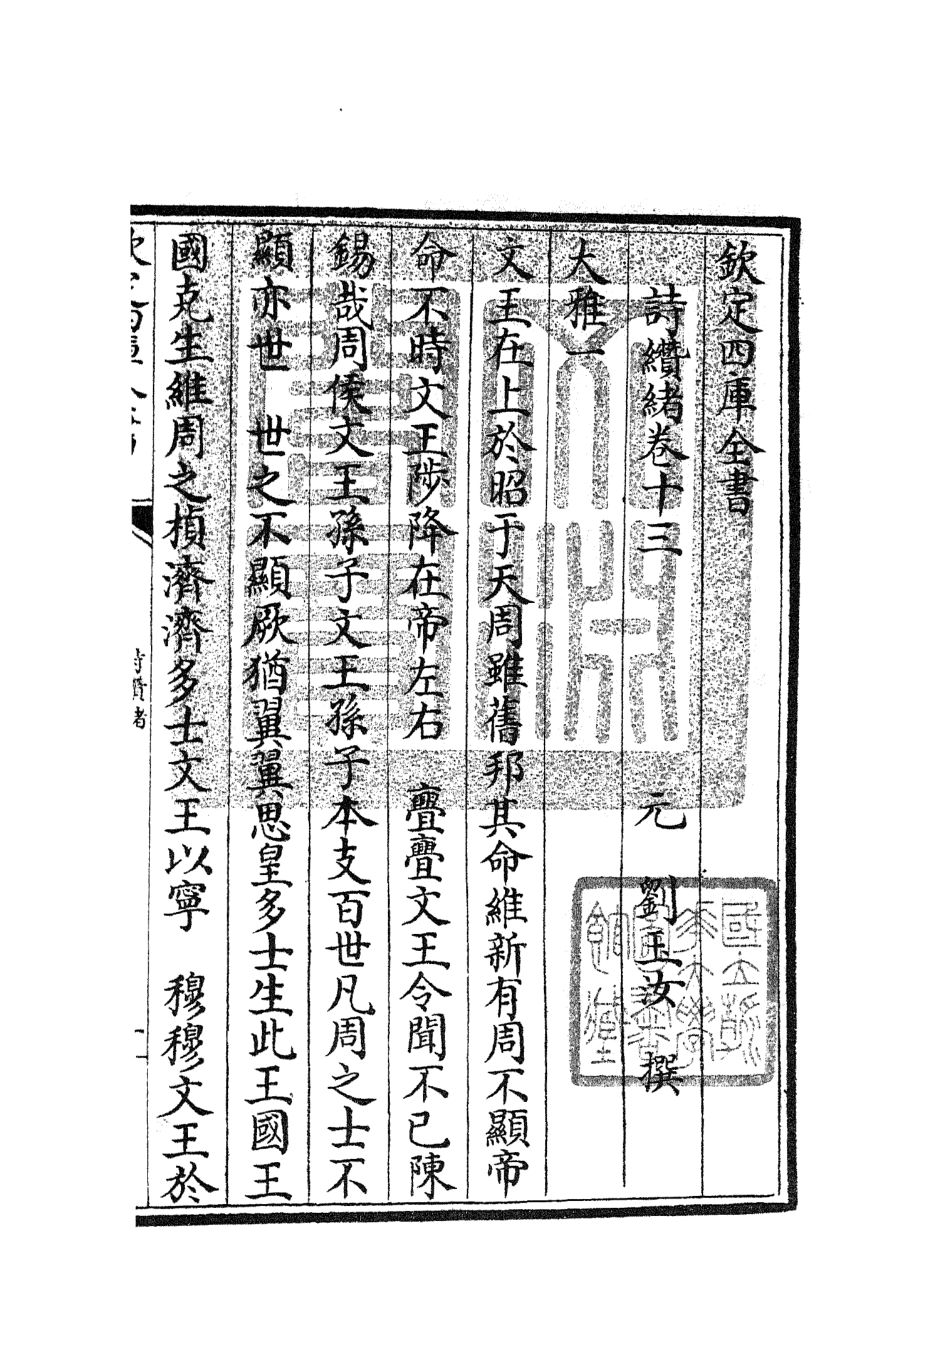 欽定四庫全書
詩纘緒卷十三　元　劉玉汝　撰
大雅一
文王在上於昭于天周雖舊邦其命維新有周不顯帝
命不時文王陟降在帝左右　亹亹文王令聞不已陳
錫哉周侯文王孫子文王孫子本支百世凡周之士不
顯亦世　世之不顯厥猶翼翼思皇多士生此王國王
國克生維周之楨濟濟多士文王以寧　穆穆文王於
詩纘緒